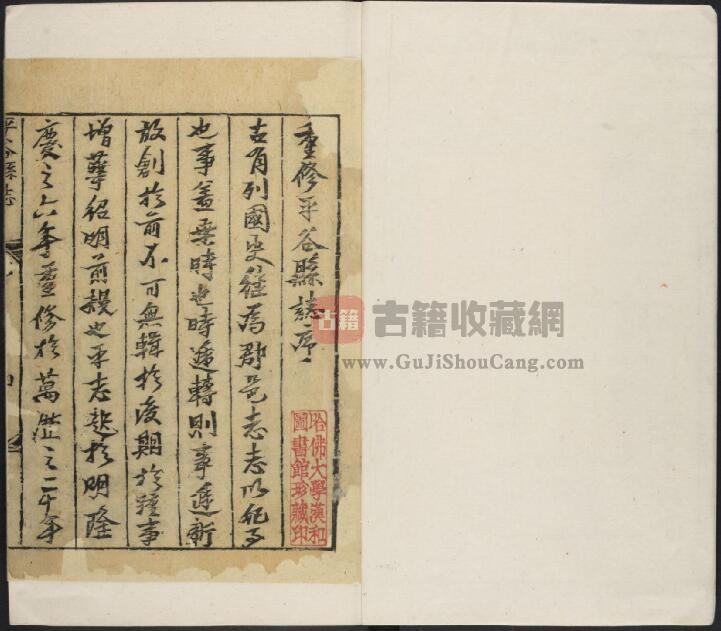 重修平谷縣誌序
古有列國史繼為郡邑志志以紀事
也事蓋乘時也時遞轉則事遞新
故創於前不可無輯於後期於踵事
增華紹明前授也平志起於明隆
慶之六年重修於萬曆之二十年
平谷縣志
哈佛大學漢和
圖書館珍藏印
古籍 古籍收藏網
www.GuJiShouCang.com